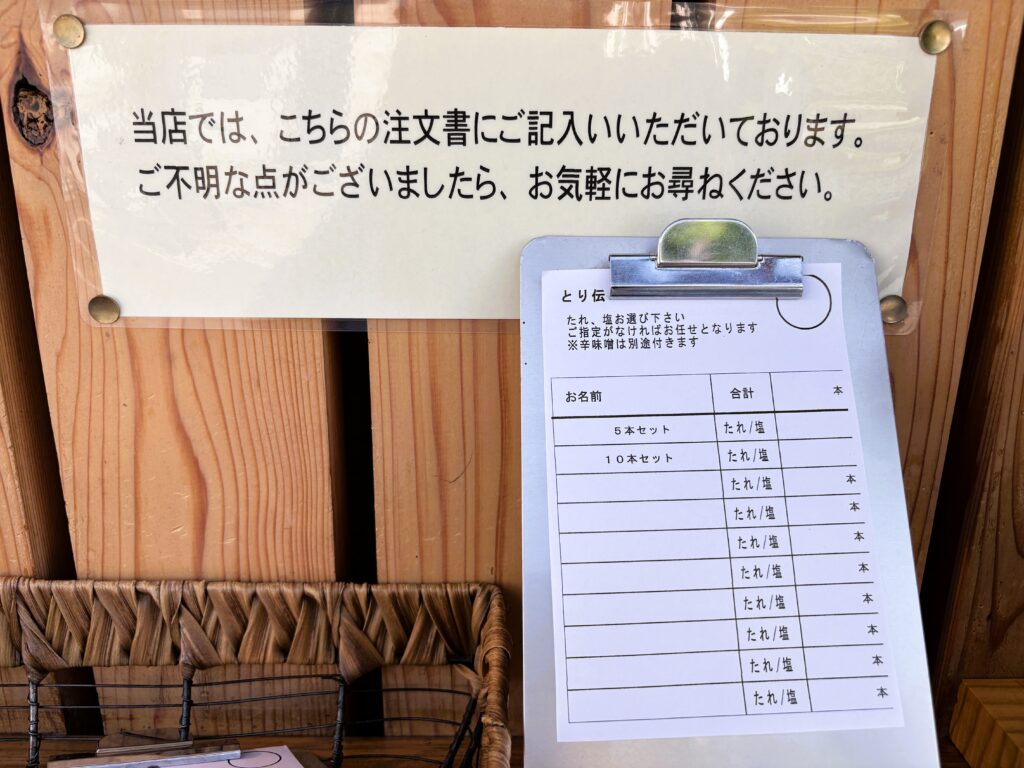 当店では、こちらの注文書にご記入いいただいております。
ご不明な点がございましたら、お気軽にお尋ねください。
とり伝
たれ、塩お選び下さい
ご指定がなければお任せとなります
※辛味噌は別途付きます
お名前 合計 本
5本セット たれ/塩
10本セット たれ/塩
たれ/塩 本
たれ/塩 本
たれ/塩 本
たれ/塩 本
たれ/塩 本
たれ/塩 本
たれ/塩 本
たれ/塩 本